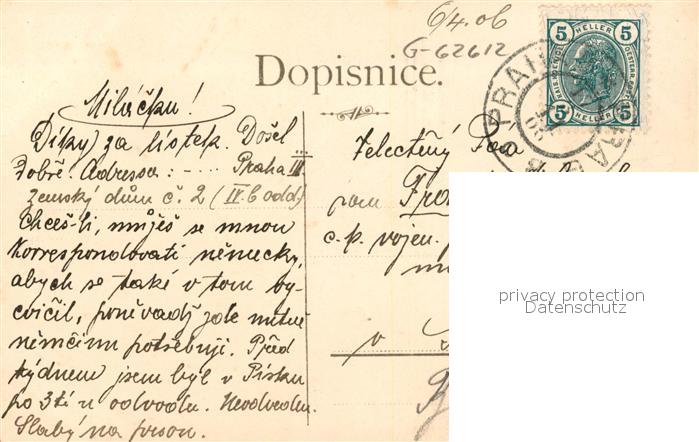 6/4.06
G-62612
5 HELLER 5
5 HELLER 5
Dopisnice.
Miláčku!
Díky za lístek. Došel
Dobře. Adressa: -.... Praha III.
Zemský dům č. 2 (IV. b odd.)
Chceš-li, můžeš se mnou
Korrespondovati německy,
abych se také v tom vy-
cvičil, poněvadž zde nutně
němčinu potřebuji. Před
týdnem jsem byl v Písku
po 3tí u odvodu. Neodveden.
Slabý na prson.
Velectěný Pán
pan
c. k. vojen.
v
privacy protection
Datenschutz